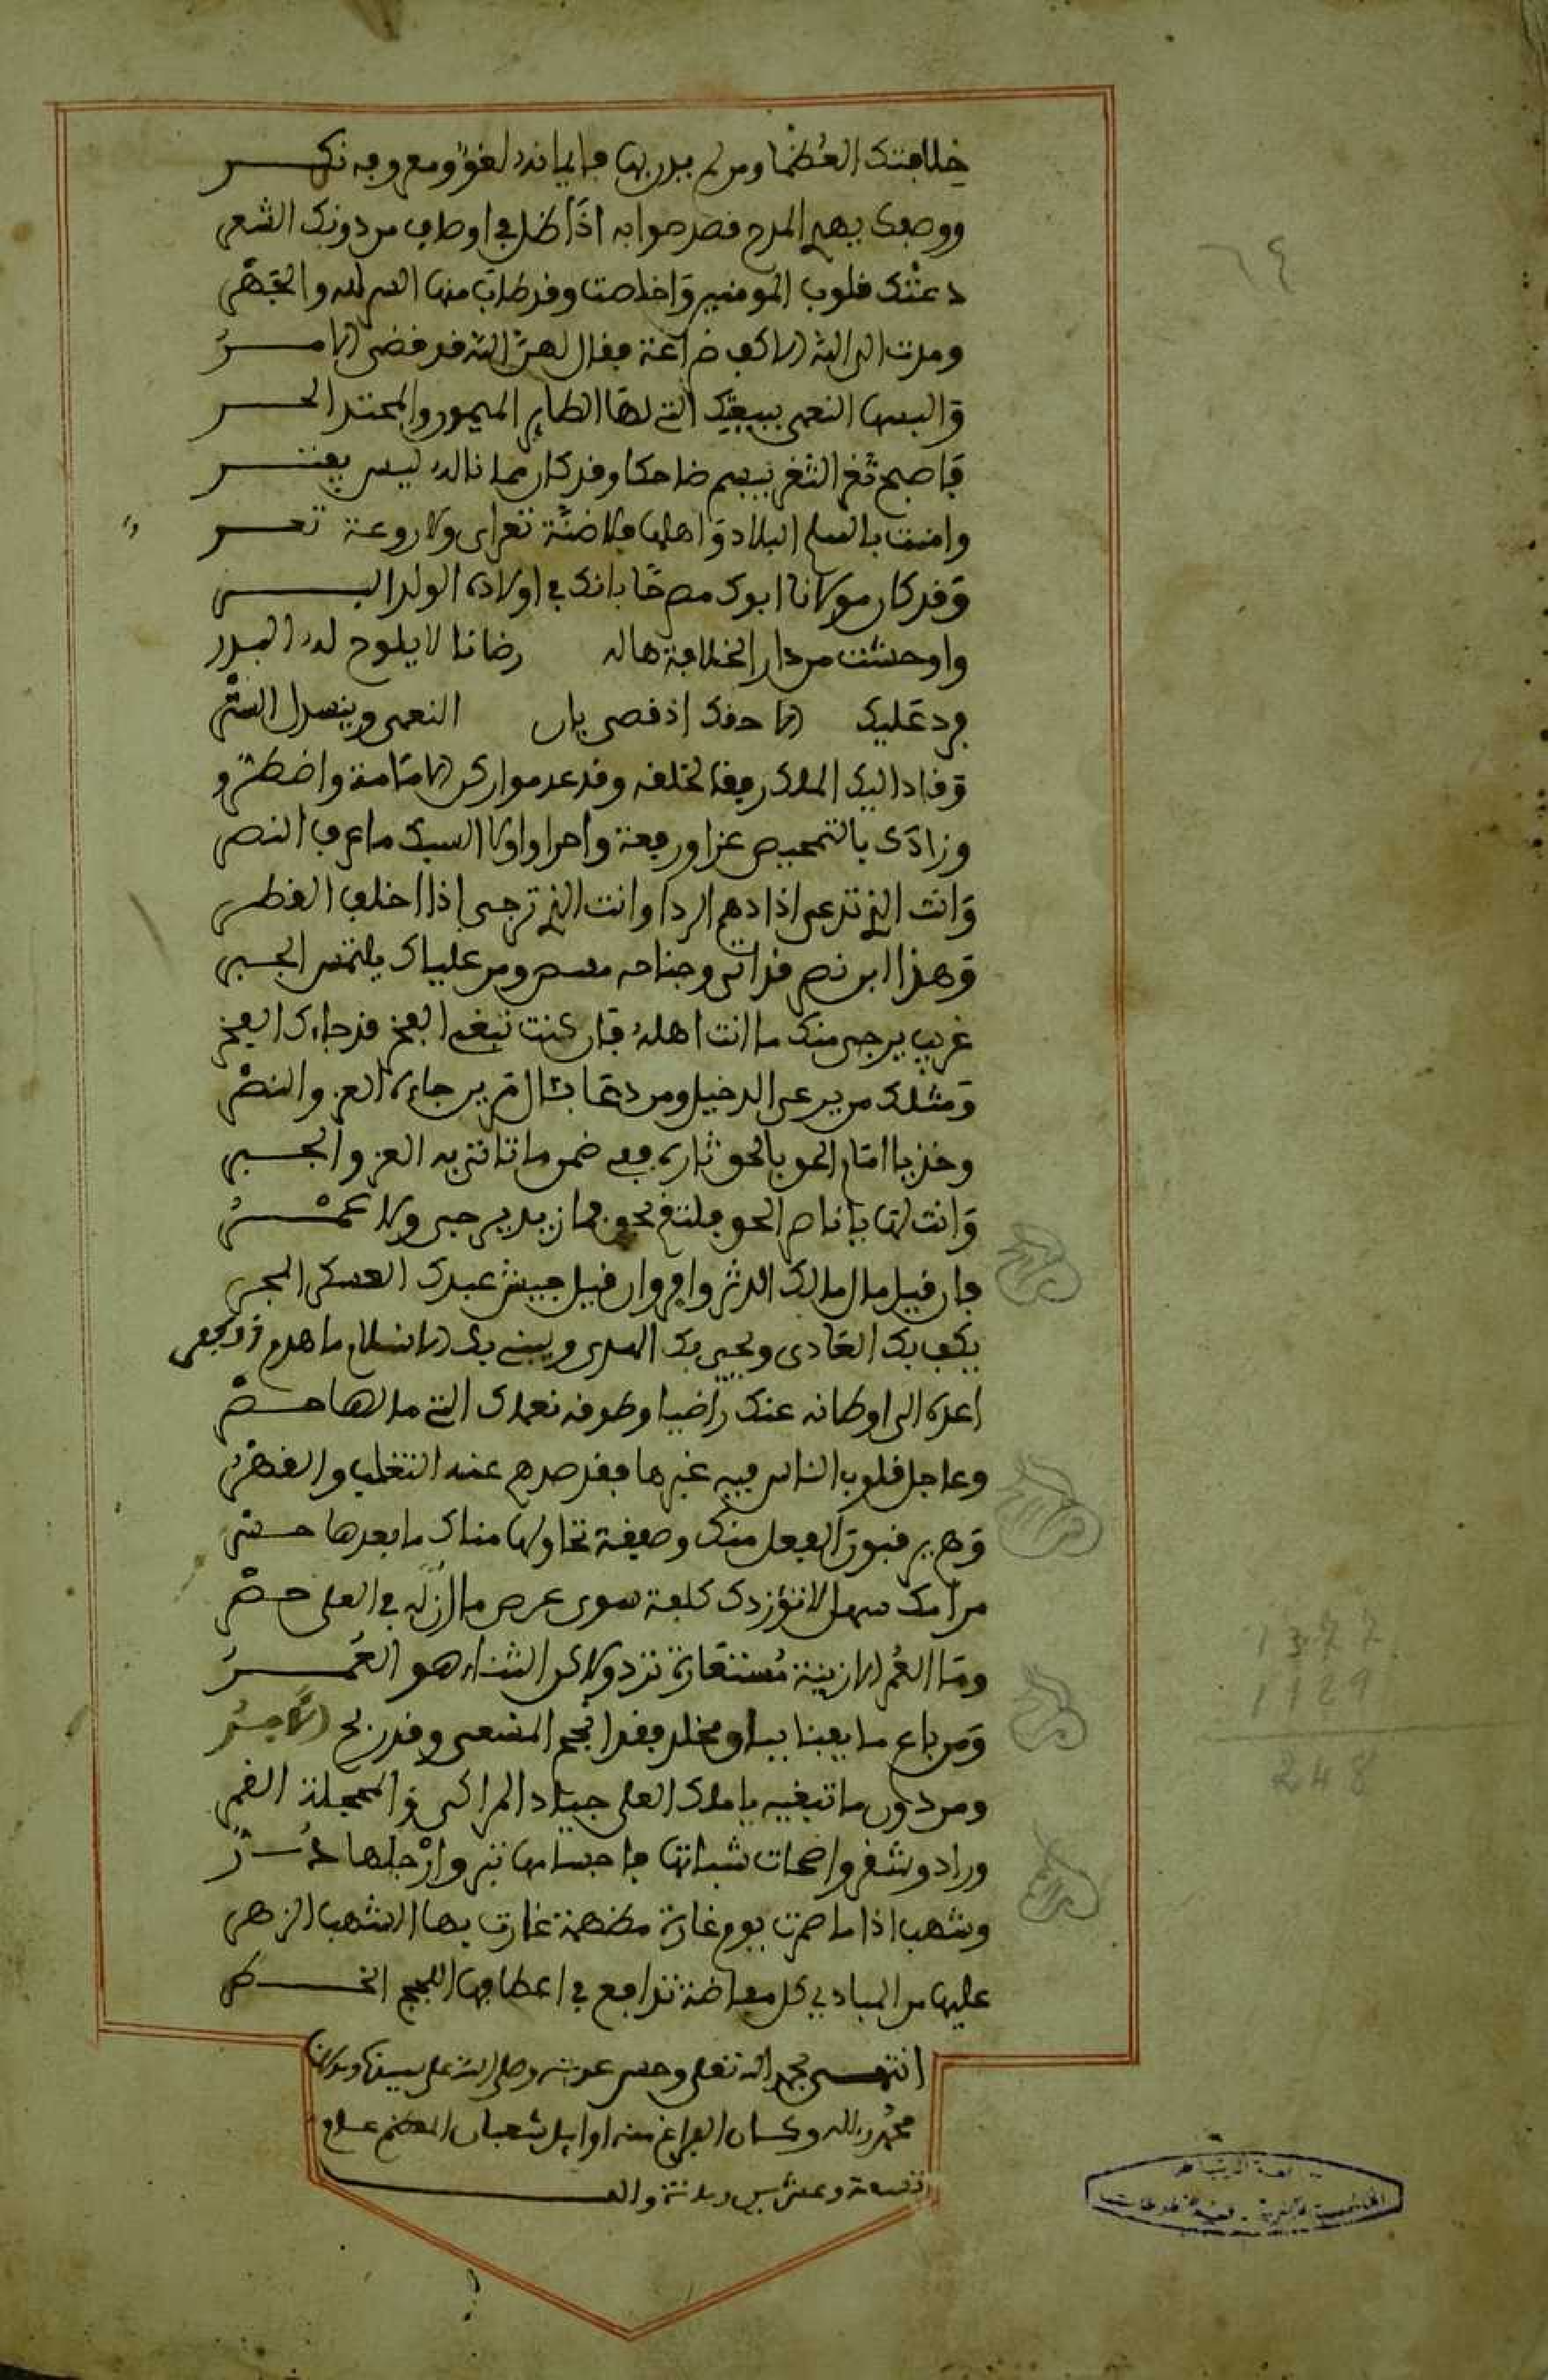 خلافتك العظما ومن لم يدن بها فإيمانه لغو ومعروفه نكر
ووصفك يهدي المدح قصد صوابه اذا ظل في اوصاف من دونك الشعر
دعتك قلوب المومنين واخلصت وقد طاب منها السر لله والجهر
ومدت الى الله الاكف ضراعة فقال لهن الله قد قضي الامر
والبسها النعمى ببيعتك التي لها الطاير الميمون والمحتد الحر
فاصبح ثغر الثغر يبسم ضاحكا وقد كان مما ناله ليس يفتر
وامنت بالسلم البلاد واهلها فلا ضبة تعرى ولا روعة تعر
وقد كان مولانا ابوك مصرحا بانك في اولاده الولد البر
واوحشت من دار الخلافة هالة رضانا لا يلوح له البدر
فرد عليك الا حقك اذ قضى بان النعمى وينسدل الستر
وقاد اليك الملك رفقا لخلقه وقد عدموا ركن الامامة واضطروا
وزادك بالتمحيص عزا ورفعة واجرا ولولا السبك ما عرف النضر
وانت الذي تدعى اذا دهم الردا وانت الذي ترجى اذا اخلف القطر
وهذا ابن نصر قد اتى وجناحه مهيض ومن علياك يلتمس الجبر
غريب يرجي منك ما انت اهله فان كنت تبغي الفخر قد جاءك الفخر
ومثلك من يرعى الدخيل ومن دعا بيال مرين جاءه العز والنصر
وخذ يا امام الحق بالحق ثاره ففي ضمن ما تاتي به العز والجبر
وانت لها يا ناصر الحق فلتقم بحق فما زيد يرجى ولا عمر
فان قيل مال مالك الدثر وافر وان قيل جيش عندك العسكر المجر
يكف بك العادي ويحيى بك الهدى ويبنى بك الاسلام ما هدم الكفر
اعده الى اوطانه عنك راضيا وطوقه نعماك التي ما لها حصر
وعاجل قلوب الناس فيه بجبرها فقد صدهم عنه التغلب والقهر
وهم يرقبون الفعل منك وصفقة تحاولها يمناك ما بعدها خسر
مرامك سهل لا تؤودك كلفة سوى عرض ما ان له في العلى خطر
وما العمر الا زينة مستعارة ترد ولاكن الثناء هو العمر
ومن باع ما يفنا بباق مخلد فقد انجح المسعى وقد ربح التجر
ومن دون ما تبغيه يا ملك العلى جياد المراكي والمحجلة الغر
وراد وشقر واضحات شياتها فاجسامها تبر وارجلها در
وشهب اذا ما ضمرت يوم غارة مطهمة غارت بها الشهب الزهر
عليها من الماذي كل مفاضة تدافع في اعطافها اللجج الخضر
انتهى بحمد الله تعلى وحسن عونه وصلى الله على سيدنا ومولانا
محمد واله وكان الفراغ منه اوايل شعبان المعظم عام
تسعة وعشرين ومائة والف
٦٤
1377
1129
248